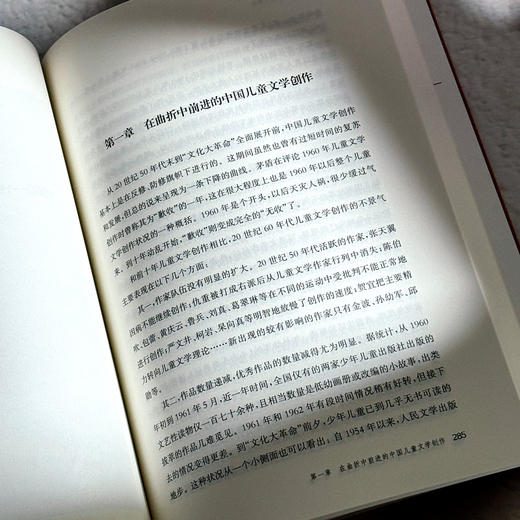 第一章 在曲折中前进的中国儿童文学创作
从20世纪50年代末到“文化大革命”全面展开前，中国儿童文学创作
基本上是在反修、防修旗帜下进行的。这期间虽然也曾有过短时间的复苏
和发展，但总的说来呈现为一条下降的曲线。茅盾在评论1960年儿童文学
创作时曾称其为“歉收”的一年，这在很大程度上也是1960年以后整个儿童
文学创作状况的一种概括。1960年是个开头，以后天灾人祸，很少缓过气
来，到十年动乱开始，“歉收”则变成完全的“无收”了。
和前十年儿童文学创作相比，20世纪60年代儿童文学创作的不景气
主要表现在以下几个方面。
其一，作家队伍没有明显的扩大。20世纪50年代活跃的作家，张天翼
因病不能继续创作；仇重被打成右派后从儿童文学作家行列中消失；陈伯
吹、包蕾、黄庆云、鲁兵、刘真、葛翠琳等在不同的运动中受批判不能正常地
进行创作；严文井、柯岩、呆向真等明智地放慢了创作的速度；贺宜把主要精
力转向儿童文学理论……新出现的较有影响的作家只有金波、孙幼军、邱
勋等。
其二，作品数量递减，优秀作品的数量减得尤为明显。据统计，从1960
年初到1961年5月，近一年时间，全国仅有的两家少年儿童出版社出版的
文艺性读物仅一百七十余种，且相当数量是低幼画册或改编的小故事，出类
拔萃的作品儿难觅见。1961年和1962年有段时间情况稍有好转，但接下
去的情况变得更差。到“文化大革命”前夕，少年儿童已到几乎无书可读的
地步。这种状况从一个小侧面也可以看出：自1954年以来，人民文学出版
第一章 在曲折中前进的中国儿童文学创作 285